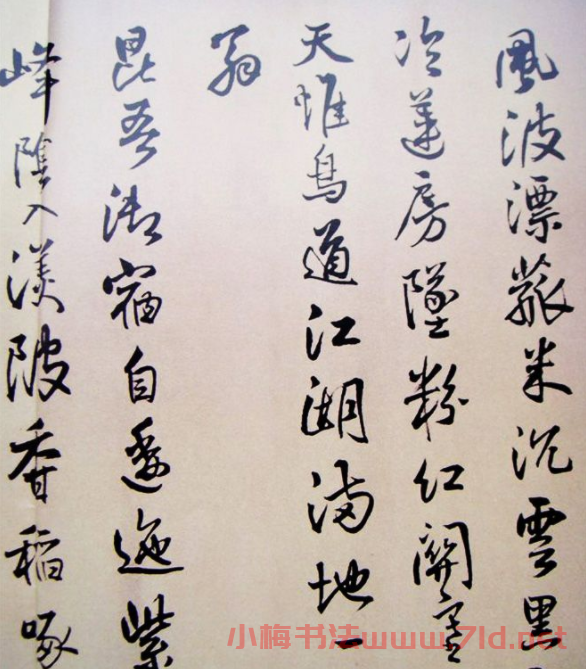 風波漂菰米沉雲黑
冷蓮房墜粉紅關塞
天惟鳥道江湖滿地一
翁
昆吾御宿自逶迤紫
峰陰入渼陂香稻啄
小梅书法www.7ld.net